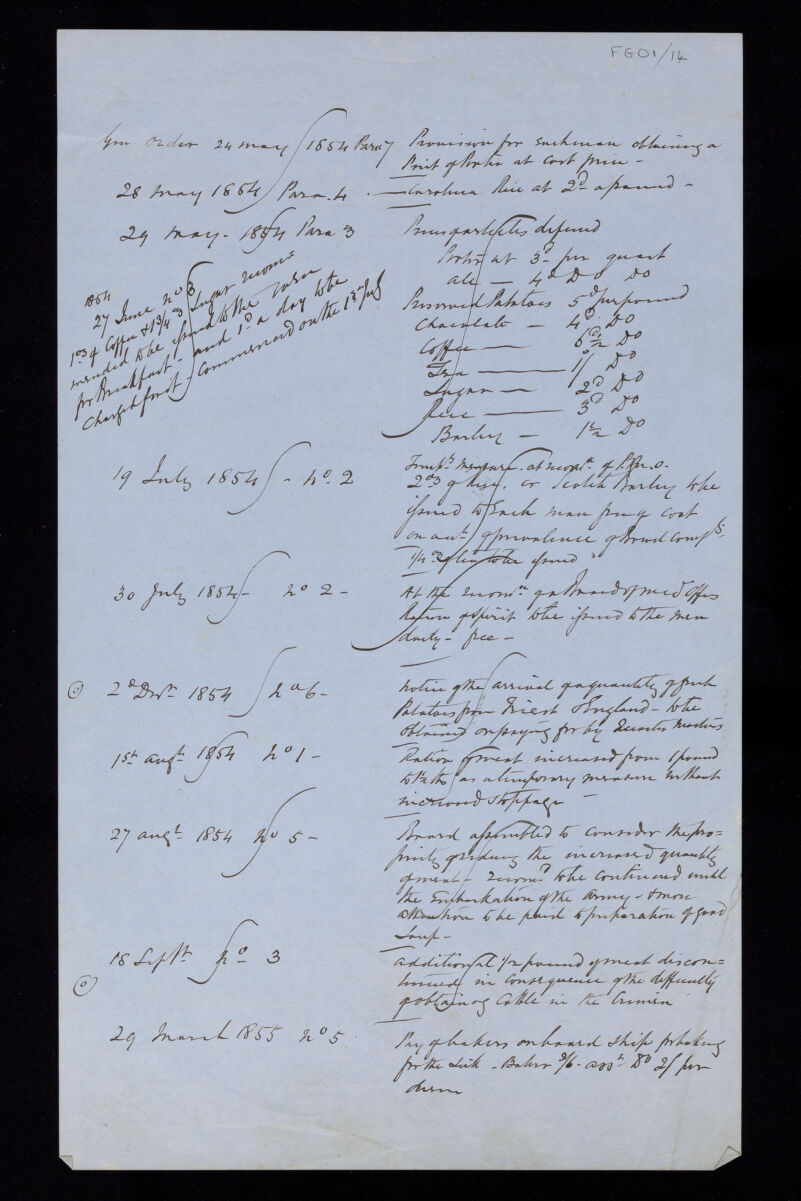 FG01/14
Gen Order 24 May 1854 Para 7 Provision for each man obtaining a
Pint of Porter at cost price -
28 May 1854 Para. 4 - Carolina Rice at 2d a pound -
29 May - 1854 Para 3 Prices defined
Porter at 3d per quart
Ale — 4d Do Do
Preserved Potatoes 5d per pound
Chocolate — 4d Do
Coffee — 6½d Do
Tea — 1/ Do
Sugar — 2d Do
Rice — 3d Do
Barley — 1½ Do
1854
27 June No 3
1 oz of Coffee & 1 3/4 oz Sugar recom=
mended to be issued to the
for Breakfast - and 1d a day to be
Charged for it - commenced on the 1st July
19 July 1854 - No. 2 Tempy measure - at recomn of P.M.O.
2 oz of Rice, or Scotch Barley to be
issued to Each man free of cost
on acct of prevalence of Bowel Complts
1/4 oz of tea to be issued
30 July 1854 - No 2 - At the recomn of a Board of Med Offrs
Ration of Spirit to be issued to the men
duty - free -
2d Decr 1854 No 6 - Notice of the arrival of a quantity of fresh
Potatoes from & England - to be
obtained on paying for by Quarter Masters
1st Augt 1854 No 1 - Ration of meat increased from 1 pound
to 1½ lb as a temporary measure without
increased stoppage -
27 Augt 1854 No 5 - Board assembled to consider the pro=
priety of reducing the increased quantity
of meat - recomd to be continued until
the Embarkation of the Army - & more
attention to be paid to preparation of good
Soup -
18 Septr No 3 additional 1/2 pound of meat discon=
tinued in consequence of the difficulty
of obtaining Cattle in the Crimea
29 March 1855 No 5 Pay of bakers on board ship for baking
for the sick - Baker 3/6 - asst Do 2/ per
diem